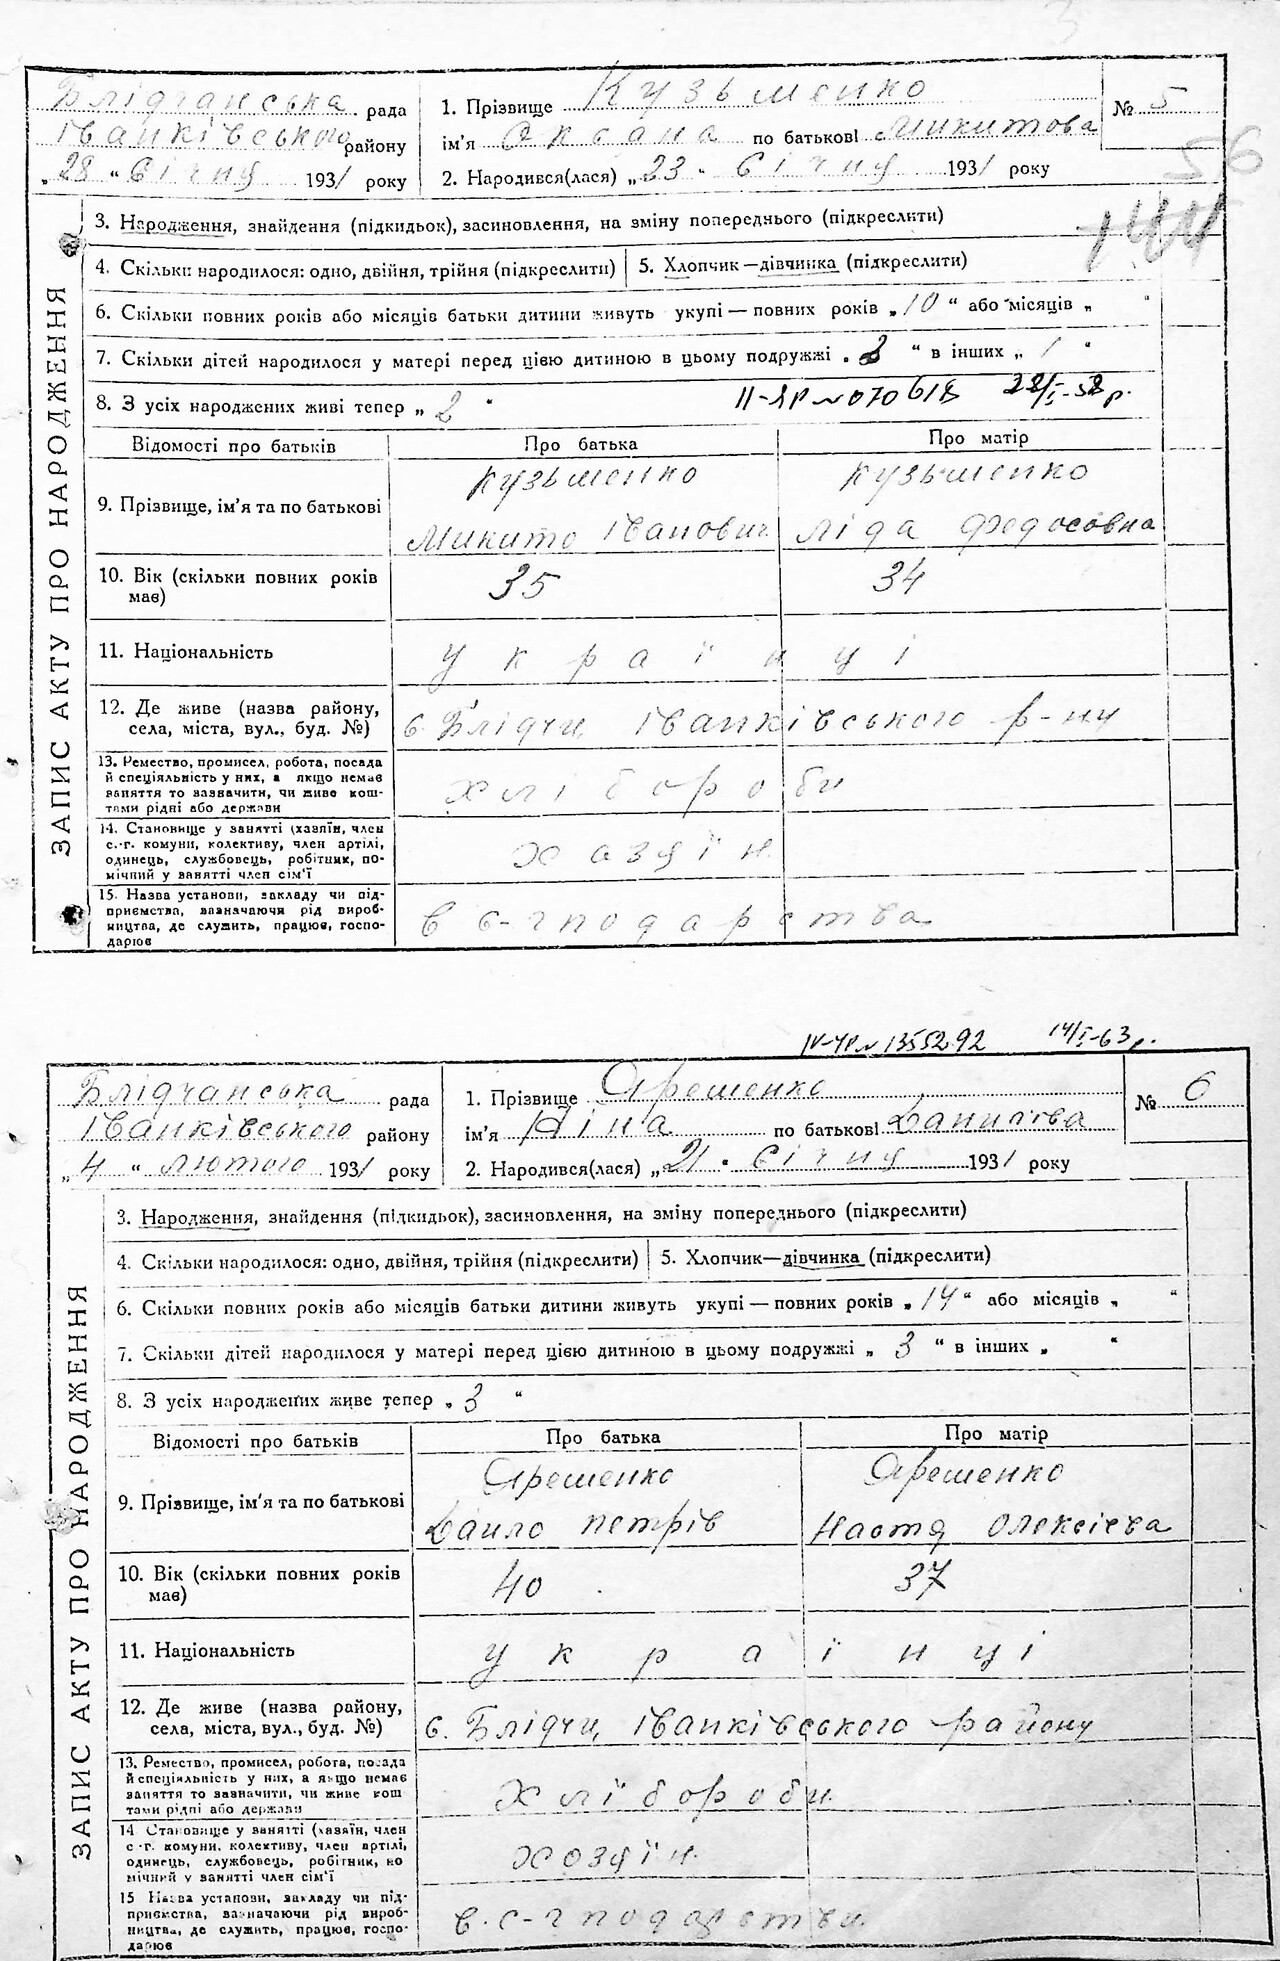 Блідчанська рада
Іванківського району
„28 “ Січну 1931 року
1. Прізвище Кузьменко
ім'я Оксана по батькові Микитова
2. Народився(лася) „23 “ Січну 1931 року
№ 5
56
144
ЗАПИС АКТУ ПРО НАРОДЖЕННЯ
3. Народження, знайдення (підкидьок), засиновлення, на зміну попереднього (підкреслити)
4. Скільки народилося: одно, двійня, трійня (підкреслити) 5. Хлопчик—дівчинка (підкреслити)
6. Скільки повних років або місяців батьки дитини живуть укупі — повних років „10 “ або місяців „ “
7. Скільки дітей народилося у матері перед цією дитиною в цьому подружжі „ “ в інших „ 1 “
8. З усіх народжених живі тепер „ 2 “ II-ЯР № 070618 28/I-58 р.
Відомості про батьків Про батька Про матір
9. Прізвище, ім'я та по батькові
Кузьменко Кузьменко
Микито Іванович Ліда Федосовна
10. Вік (скільки повних років має) 35 34
11. Національність українці
12. Де живе (назва району, села, міста, вул., буд. №) с. Блідчи, Іванківського р-ну
13. Ремество, промисел, робота, посада
й спеціяльність у них, а якщо немає
заняття то зазначити, чи живе кош-
тами рідні або держави
хлібороби
14. Становище у занятті (хазяїн, член
с.-г. комуни, колективу, член артілі,
одинець, службовець, робітник, по-
мічний у занятті член сім'ї
хазяїн
15. Назва установи, закладу чи під-
приємства, зазначаючи рід вироб-
ництва, де служить, працює, госпо-
дарює
в с-господарства
IV-ЧР № 1355292 14/I-63 р.
Блідчанська рада
Іванківського району
„4 “ лютого 1931 року
1. Прізвище Ярешенко
ім'я Ніна по батькові Данилова
2. Народився(лася) „21 “ Січну 1931 року
№ 6
ЗАПИС АКТУ ПРО НАРОДЖЕННЯ
3. Народження, знайдення (підкидьок), засиновлення, на зміну попереднього (підкреслити)
4. Скільки народилося: одно, двійня, трійня (підкреслити) 5. Хлопчик—дівчинка (підкреслити)
6. Скільки повних років або місяців батьки дитини живуть укупі — повних років „14“ або місяців „ “
7. Скільки дітей народилося у матері перед цією дитиною в цьому подружжі „ 3 “ в інших „ “
8. З усіх народжених живе тепер „ 3 “
Відомості про батьків Про батька Про матір
9. Прізвище, ім'я та по батькові
Ярешенко Ярешенко
Данло Петрів Настя Олексієва
10. Вік (скільки повних років має) 40 37
11. Національність українці
12. Де живе (назва району, села, міста, вул., буд. №) с. Блідчи, Іванківського району
13. Ремество, промисел, робота, посада
й спеціяльність у них, а якщо немає
заняття то зазначити, чи живе кош
тами рідні або держави
хлібороби
14 Становище у занятті (хазяїн, член
с.-г. комуни, колективу, член артілі,
одинець, службовець, робітник, по
мічний у занятті член сім'ї
хозяїн
15 Назва установи, закладу чи під-
приємства, зазначаючи рід вироб-
ництва, де служить, працює, госпо-
дарює